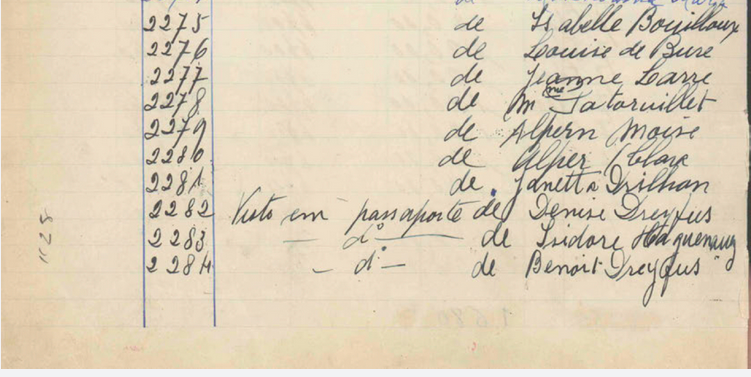 de
2275 de Isabelle Bouilloux
2276 de Louise de Bure
2277 de Jeanne Larre
2278 de Mme Tatorvillet
2279 de Alpern Moise
2280 de Alper
2281 de Janette
2282 Visto em passaporte de Denise Dreyfus
2283 — dº — de Isidore Haguenaug
2284 — dº — de Benoit Dreyfus